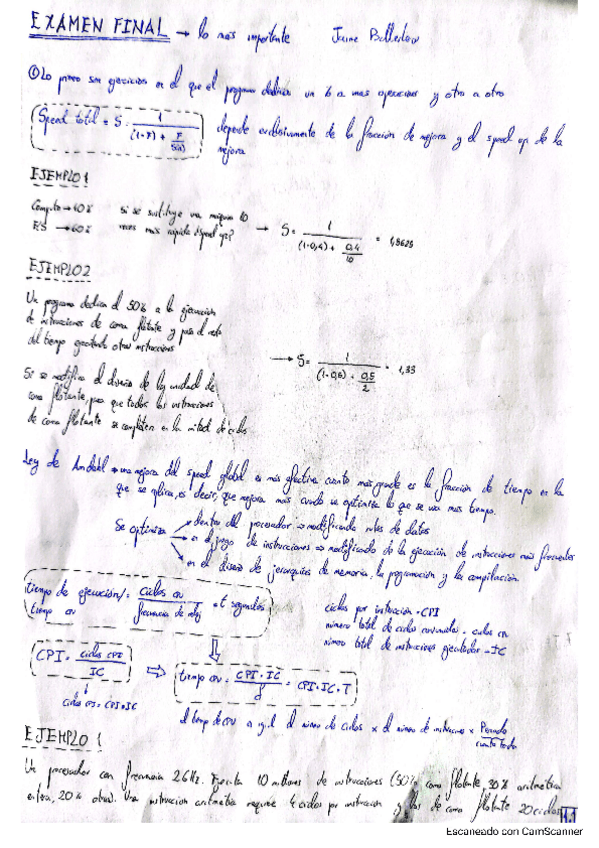 EXÁMEN FINAL → lo más importante Jaime
① Lo primero son ejercicios en el que el programa dedica un % a unas operaciones y otro a otro
Speed total = S = 1 / ((1-F) + F/S(n)) depende exclusivamente de la fracción de mejora y el speed up de la
mejora
EJEMPLO 1
Computo → 40% Si se sustituye una máquina 10
E/S → 60% veces más rápida ¿speed up? → S = 1 / ((1-0,4) + 0,4/10) = 1,5625
EJEMPLO 2
Un programa dedica el 50% a la ejecución
de instrucciones de coma flotante y pasa el resto
del tiempo ejecutando otras instrucciones
→ S = 1 / ((1-0,6) + 0,5/2) = 1,33
Si se modifica el diseño de la unidad de
coma flotante, para que todas las instrucciones
de coma flotante se completen en la mitad de ciclos
Ley de Amdahl → una mejora del speed global es más efectiva cuanto más grande es la fracción de tiempo en la
que se aplica, es decir, que mejora más cuando se optimiza lo que se usa más tiempo.
Se optimiza dentro del procesador → modificando rutas de datos
en el juego de instrucciones → modificado de la ejecución de instrucciones más frecuentes
en el diseño de jerarquías de memoria, la programación y la compilación
tiempo de ejecución/tiempo CPU = ciclos CPU / frecuencia de reloj = t segundos
ciclos por instrucción = CPI
número total de ciclos consumidos = ciclos CPU
número total de instrucciones ejecutadas = IC
CPI = ciclos CPI / IC ⇒ tiempo CPU = CPI · IC / f = CPI · IC · T
ciclos CPU = CPI × IC
el tiempo de CPU es igual al número de ciclos × el número de instrucciones × Periodo
EJEMPLO 1
Un procesador con frecuencia 2GHz. Ejecuta 10 millones de instrucciones (50% coma flotante, 30% aritmética
entera, 20% otras). Una instrucción aritmética requiere 4 ciclos por instrucción y las de coma flotante 20 ciclos
1.1
Escaneado con CamScanner